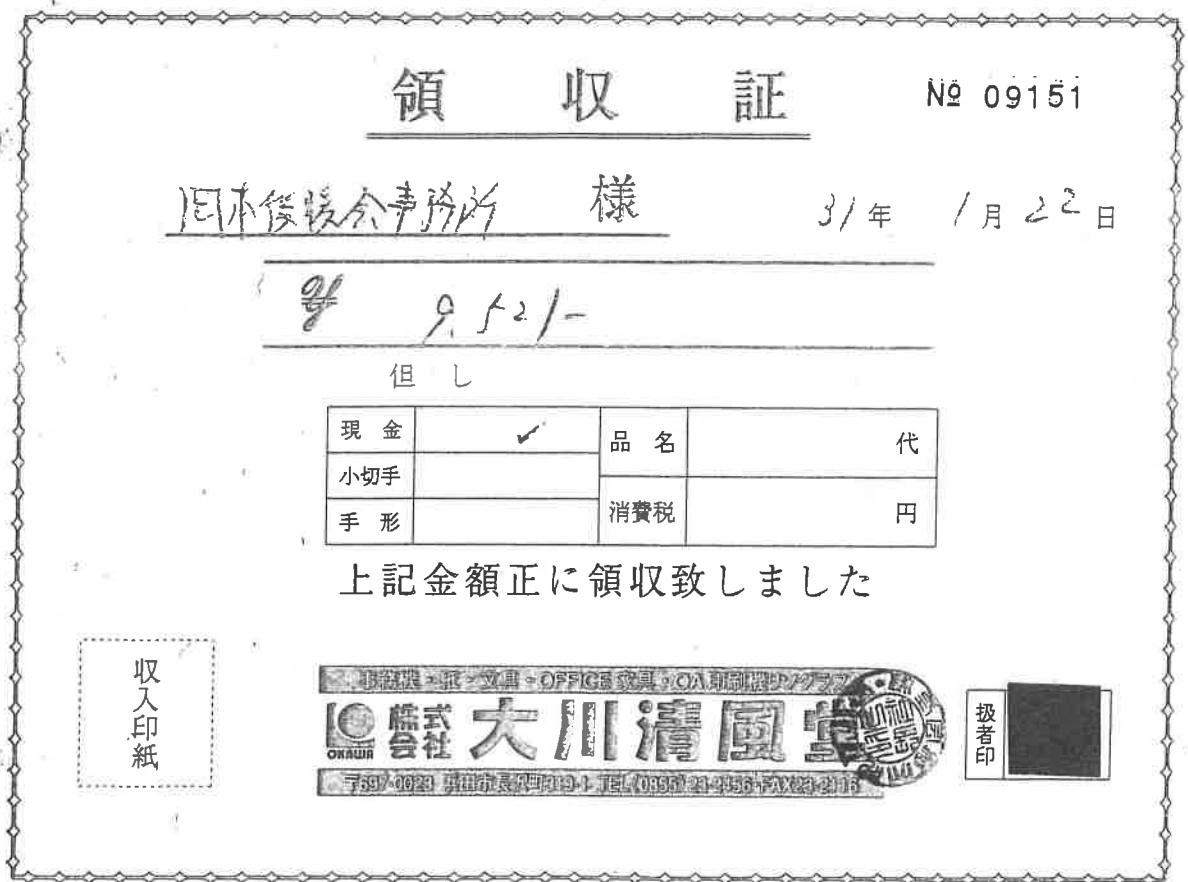 領収証
№ 09151
後援会事務所 様
31年 1月22日
¥ 9,521-
但し
現金 ✓ 品名 代
小切手
手形 消費税 円
上記金額正に領収致しました
収入印紙
事務機・紙・文具・OFFICE家具・OA印刷機リソグラフ
OKAWA 株式会社 大川清風堂
扱者印
〒697-0023 浜田市長沢町319-1 TEL(0855)23-2356・FAX23-2116